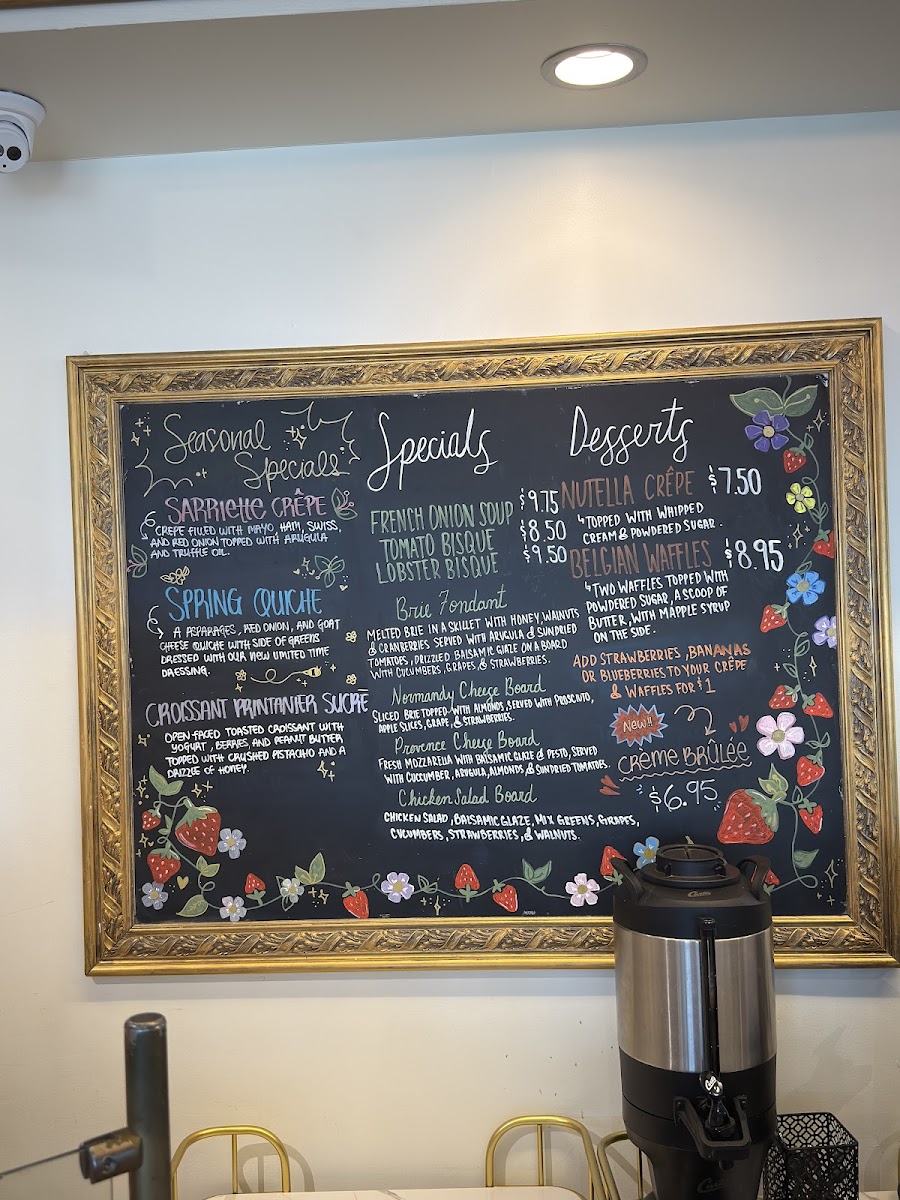 Seasonal
Specials
SARRIETTE CRÊPE
CREPE FILLED WITH MAYO, HAM, SWISS,
AND RED ONION TOPPED WITH ARUGULA
AND TRUFFLE OIL.
SPRING QUICHE
A ASPARAGES, RED ONION, AND GOAT
CHEESE QUICHE WITH SIDE OF GREENS
DRESSED WITH OUR NEW LIMITED TIME
DRESSING.
CROISSANT PRINTANIER SUCRE
OPEN FACED TOASTED CROISSANT WITH
YOGURT, BERRIES, AND PEANUT BUTTER
TOPPED WITH CRUSHED PISTACHIO AND A
DRIZZLE OF HONEY.
Specials
FRENCH ONION SOUP $9.75
TOMATO BISQUE $8.50
LOBSTER BISQUE $9.50
Brie Fondant
MELTED BRIE IN A SKILLET WITH HONEY, WALNUTS
& CRANBERRIES SERVED WITH ARUGULA & SUNDRIED
TOMATOES, DRIZZLED BALSAMIC GLAZE ON A BOARD
WITH CUCUMBERS, GRAPES, & STRAWBERRIES.
Normandy Cheese Board
SLICED BRIE TOPPED WITH ALMONDS, SERVED WITH PROSCIUTO,
APPLE SLICES, GRAPE, & STRAWBERRIES.
Province Cheese Board
FRESH MOZZARELLA WITH BALSAMIC GLAZE & PESTO, SERVED
WITH CUCUMBER, ARUGULA, ALMONDS, & SUNDRIED TOMATOES.
Chicken Salad Board
CHICKEN SALAD, BALSAMIC GLAZE, MIX GREENS, GRAPES,
CUCUMBERS, STRAWBERRIES, & WALNUTS.
Desserts
NUTELLA CRÊPE $7.50
TOPPED WITH WHIPPED
CREAM & POWDERED SUGAR.
BELGIAN WAFFLES $8.95
TWO WAFFLES TOPPED WITH
POWDERED SUGAR, A SCOOP OF
BUTTER, WITH MAPPLE SYRUP
ON THE SIDE.
ADD STRAWBERRIES, BANANAS
OR BLUEBERRIES TO YOUR CRÊPE
& WAFFLES FOR $1
New!!
CRÈME BRÛLÉE
$6.95
Curtis